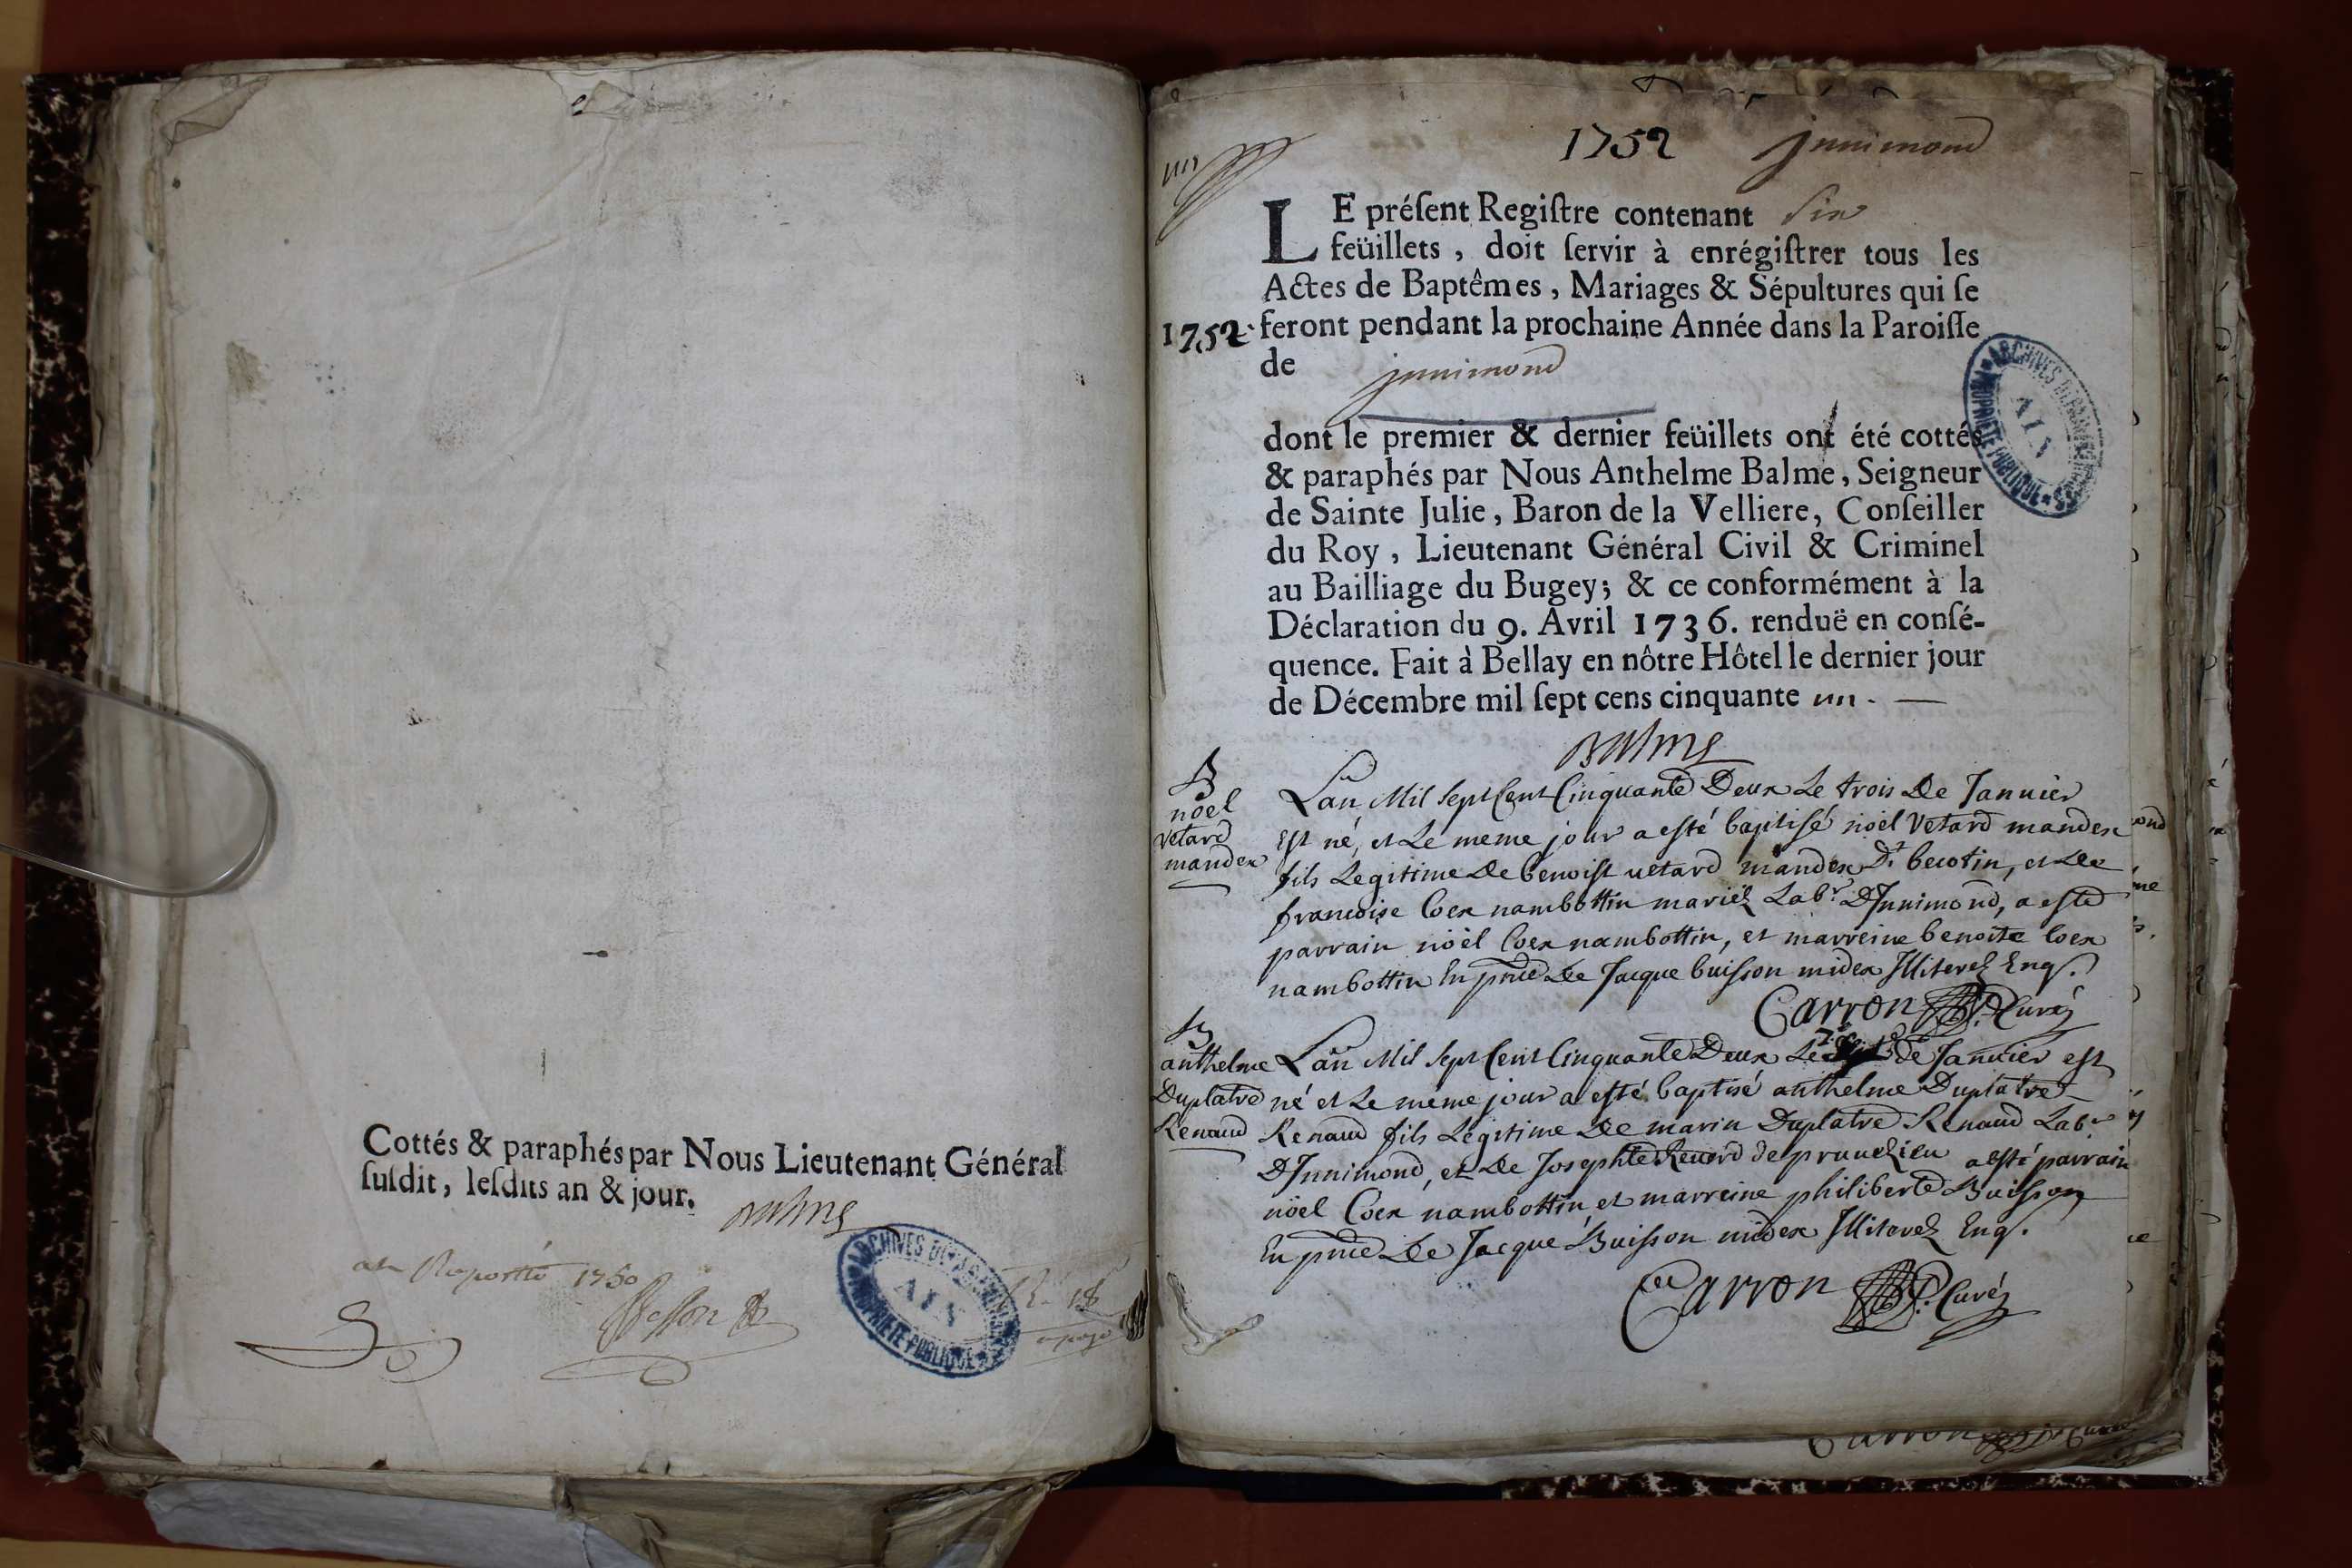 Cottés & paraphés par Nous Lieutenant Général
ſuſdit, leſdits an & jour.
Balme
1750
ARCHIVES DÉPARTEMENTALES
AIN
PROPRIÉTÉ PUBLIQUE
1752 jnnimond
un
LE préſent Regiſtre contenant six
feüillets, doit ſervir à enrégiſtrer tous les
Actes de Baptêmes, Mariages & Sépultures qui ſe
1752. feront pendant la prochaine Année dans la Paroiſſe
de jnnimond
dont le premier & dernier feüillets ont été cottés
& paraphés par Nous Anthelme Balme, Seigneur
de Sainte Julie, Baron de la Velliere, Conſeiller
du Roy, Lieutenant Général Civil & Criminel
au Bailliage du Bugey; & ce conformément à la
Déclaration du 9. Avril 1736. renduë en conſé-
quence. Fait à Bellay en nôtre Hôtel le dernier jour
de Décembre mil ſept cens cinquante un. —
ARCHIVES DÉPARTEMENTALES
AIN
PROPRIÉTÉ PUBLIQUE
Balme
B
noel
vetard
mander
Lan Mil Sept Cent Cinquante Deux Le trois De Januier
Est né, et Le meme jour a esté baptisé noël Vetard mander
fils Legitime De benoist uetard mander Dt becotin, et De
francoise Coex nambottin mariéz Labr DJnnimond, a esté
parrain noël Coex nambottin, et marreine benoite Coex
nambottin En pnce De Jacque buisson midex Jlliterez Enqs.
Carron Curé
B
anthelme
Duplatre
Renaud
Lan Mil Sept Cent Cinquante Deux Le 7e de Januier est
né et Le meme jour a esté baptisé anthelme Duplatre
Renaud fils Legitime De marin Duplatre Renaud Labr
DJnnimond, et De Josephte Reuerd de a esté parrain
noël Coex nambottin et marreine philiberte Buisson
En pnce De Jacque Buisson midex Jlliterez Enqs.
Carron Curé
Carron